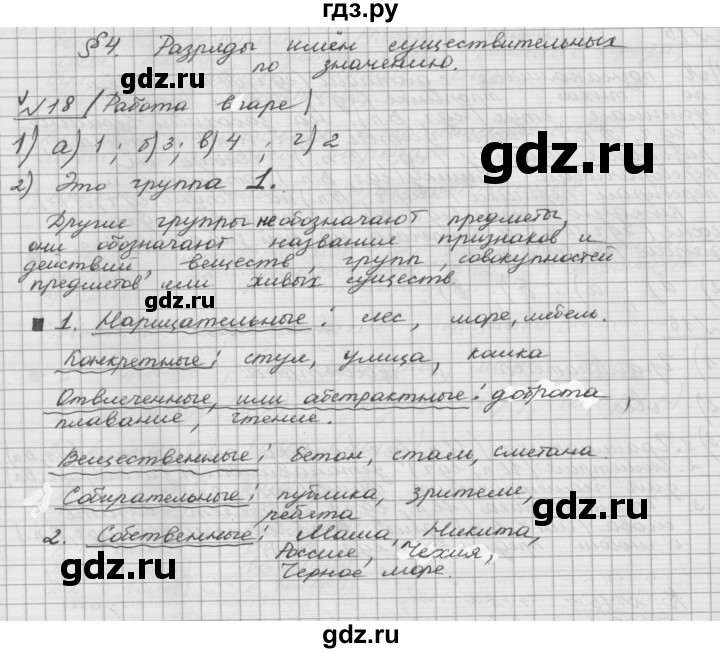 гдз.ру
§4. Разряды имён существительных
по значению.
gdz.ru
gdz.ru
№18 (Работа в паре)
1) а) 1; б) 3; в) 4; г) 2
gdz.ru
2) Это группа 1.
Другие группы не обозначают предметы,
они обозначают название признаков и
действий веществ, групп, совокупностей
предметов или живых существ.
gdz.ru
1. Нарицательные: лес, море, мебель.
Конкретные: стул, улица, кошка
gdz.ru
Отвлеченные, или абстрактные: доброта,
плавание, чтение.
Вещественные: бетон, сталь, сметана.
Собирательные: публика, зрители,
ребята
gdz.ru
2. Собственные: Маша, Никита,
Россия, Чехия,
Черное море.
gdz.ru
gdz.ru
gdz.ru